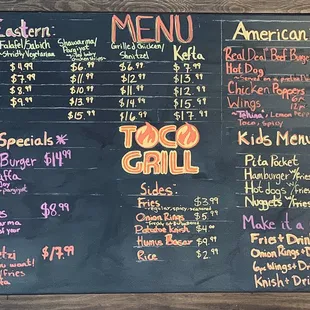 MENU
Eastern:
Falafel/Sabich
~Strictly Vegetarian
Shawarma/
Pargiyot
Grilled Chicken/
Shnitzel
Kefta
$4.99 $6.99 $6.99 $7.99
$7.99 $11.99 $12.99 $13.99
$8.99 $11.99 $12.99
$9.99 $13.99 $14.99 $15.99
$15.99 $16.99 $17.99
American
Real Deal Beef Burger
Hot Dog
Chicken Poppers
Wings
6pc
12pc
~Tehina, Lemon Pepper
Toco, Spicy
Specials *
Burger $14.99
$8.99
$17.99
want!
/Fries
TOCO
GRILL
Sides:
Fries $3.99
Onion Rings $5.99
Potatoe Knish $4.00
Humus Basar $9.99
Rice $2.99
Kids Menu
Pita Pocket
Hamburger w/fries
Hot dogs w/fries
Nuggets w/fries
Make it a
Fries + Drink
Onion Rings + D
6pc Wings + Dri
Knish + Drin